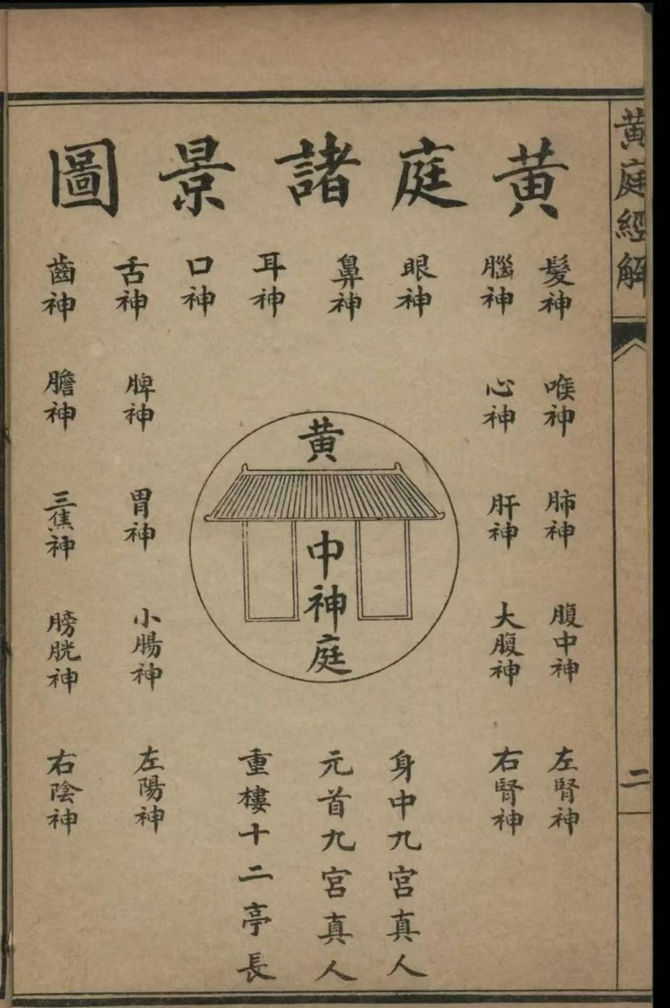 黄庭諸景圖
髮神
腦神
眼神
鼻神
耳神
口神
舌神
齒神
喉神
心神
脾神
膽神
肺神
肝神
胃神
三焦神
腹中神
大腹神
小腸神
膀胱神
左腎神
右腎神
左陽神
右陰神
黄
中神庭
身中九宮真人
元首九宮真人
重樓十二亭長
黄庭經解
二